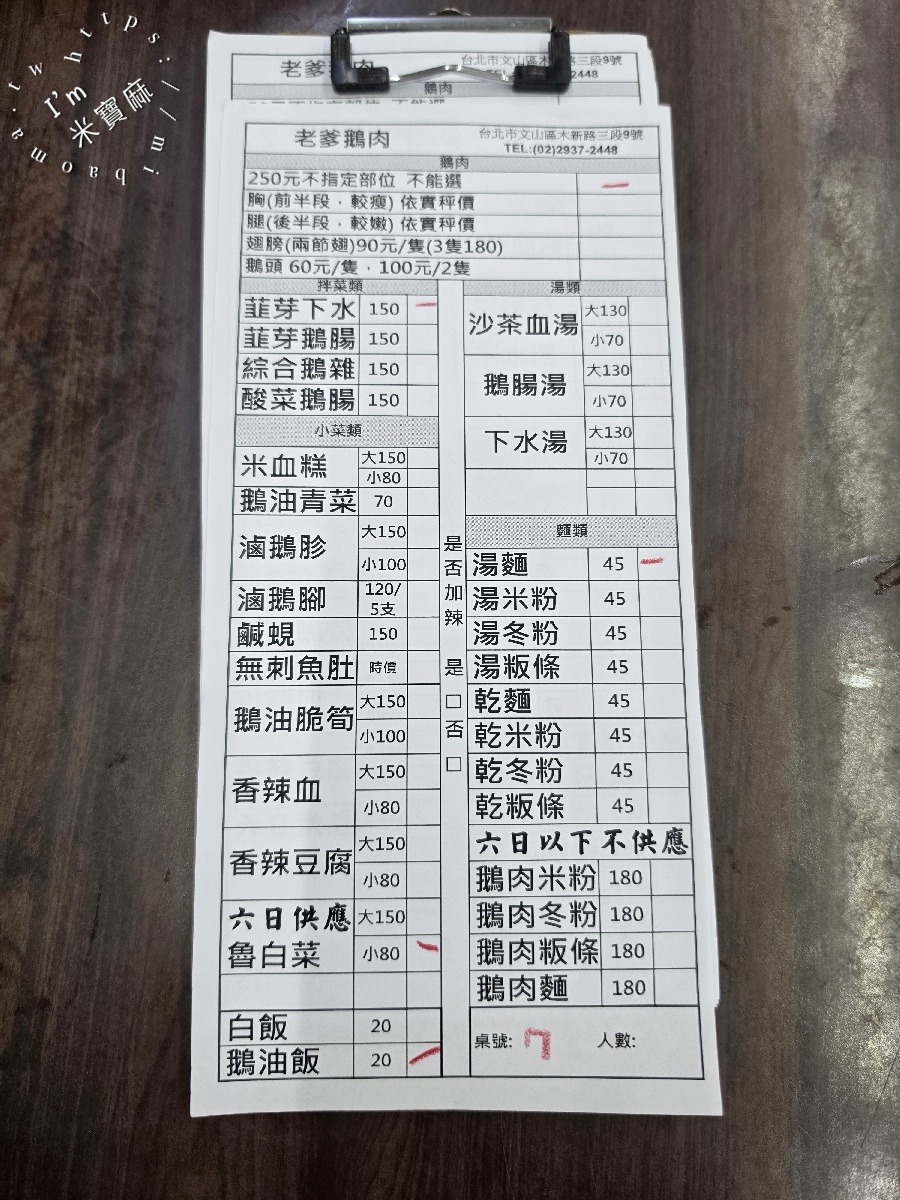 https://mibaoma.tw
I'm
米寶麻
老爹鵝肉
台北市文山區木新路三段9號
2448
鵝肉
老爹鵝肉
台北市文山區木新路三段9號
TEL:(02)2937-2448
鵝肉
250元不指定部位 不能選
胸(前半段，較瘦) 依實秤價
腿(後半段，較嫩) 依實秤價
翅膀(兩節翅)90元/隻(3隻180)
鵝頭 60元/隻，100元/2隻
拌菜類
韮芽下水 150
韮芽鵝腸 150
綜合鵝雜 150
酸菜鵝腸 150
小菜類
米血糕 大150
小80
鵝油青菜 70
滷鵝胗 大150
小100
滷鵝腳 120/
5支
鹹蜆 150
無刺魚肚 時價
鵝油脆筍 大150
小100
香辣血 大150
小80
香辣豆腐 大150
小80
六日供應 大150
魯白菜 小80
白飯 20
鵝油飯 20
是否加辣 是□否□
湯類
沙茶血湯 大130
小70
鵝腸湯 大130
小70
下水湯 大130
小70
麵類
湯麵 45
湯米粉 45
湯冬粉 45
湯粄條 45
乾麵 45
乾米粉 45
乾冬粉 45
乾粄條 45
六日以下不供應
鵝肉米粉 180
鵝肉冬粉 180
鵝肉粄條 180
鵝肉麵 180
桌號: 7 人數: